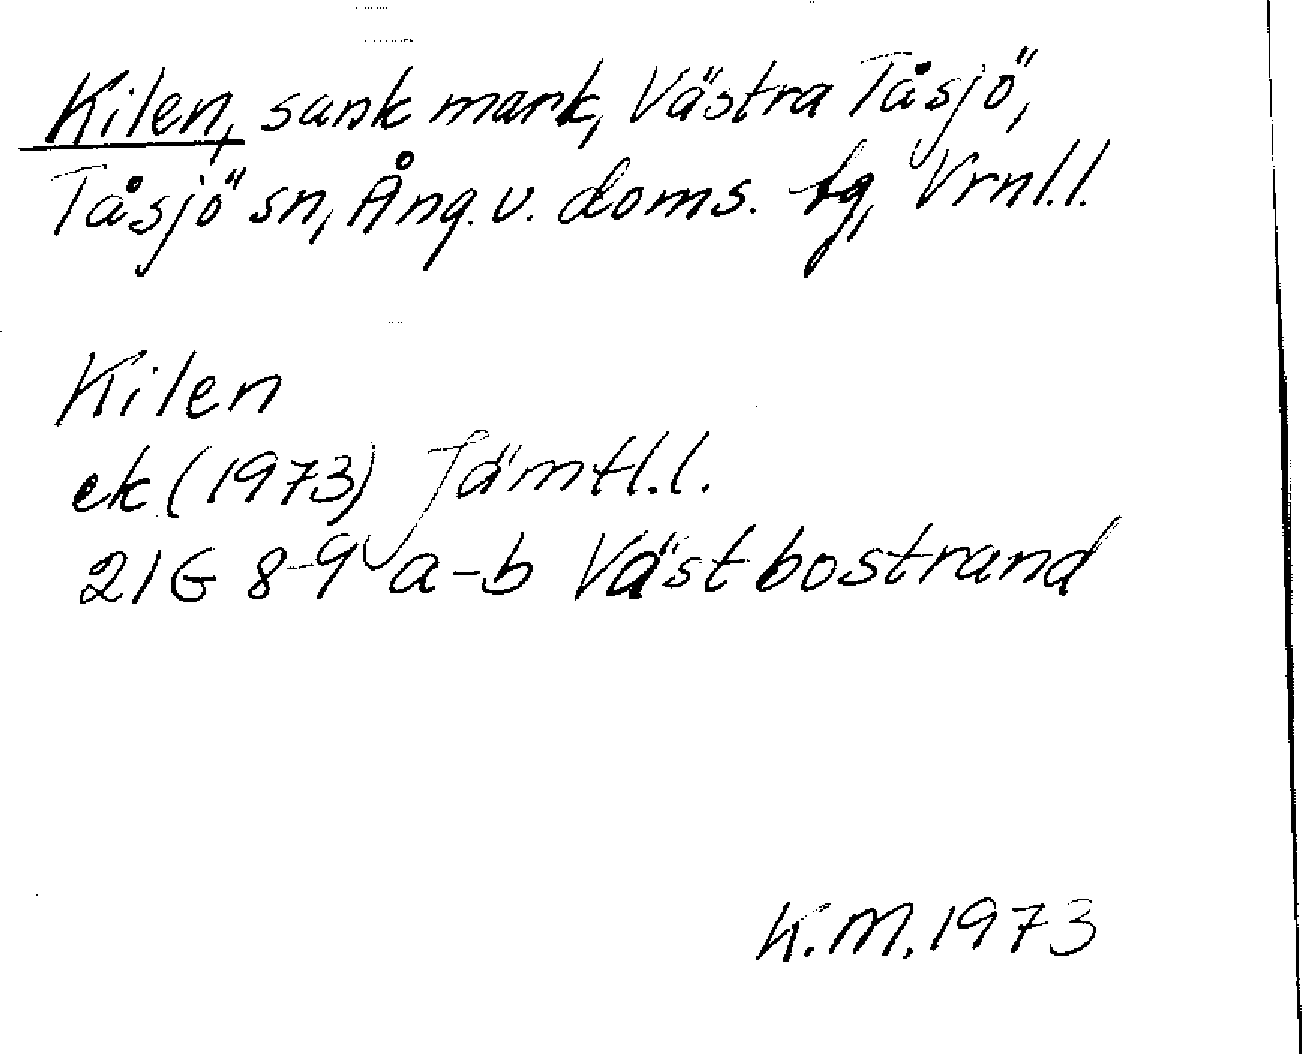 Kilen, sank mark, Västra Tåsjö,
Tåsjö sn, Ång.v. doms. tg, Vrnl.l.
Kilen
ek (1973) Jämtl.l.
21G 8-9 a-b Västbostrand
K.M. 1973